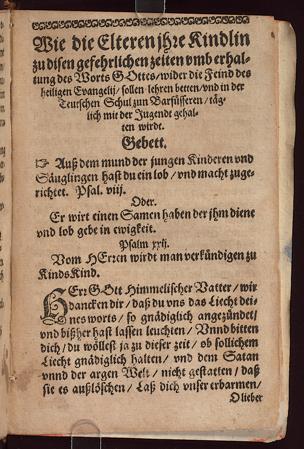 Wie die Elteren jhre Kindlin
zu disen gefehrlichen zeiten vmb erhal-
tung des Worts GOttes/ wider die Feind des
heiligen Evangelij/ sollen lehren betten/ vnd in der
Teutschen Schul zum Barfüsseren/ täg-
lich mit der Jugendt gehal-
ten wirdt.
Gebett.
☞ Auß dem mund der jungen Kinderen vnd
Säuglingen hast du ein lob/ vnd macht zuge-
richtet. Psal. viij.
Oder.
Er wirt einen Samen haben der jhm diene
vnd lob gebe in ewigkeit.
Psalm xxij.
Vom HErren wirdt man verkündigen zu
KindsKind.
HErr GOtt Himmelischer Vatter/ wir
dancken dir/ daß du vns das Liecht dei-
nes worts/ so gnädiglich angezündet/
vnd bißher hast lassen leuchten/ Vnnd bitten
dich/ du wöllest ja zu dieser zeit/ ob sollichem
Liecht gnädiglich halten/ vnd dem Satan
vnnd der argen Welt/ nicht gestatten/ daß
sie es außlöschen/ Laß dich vnser erbarmen/
O lieber